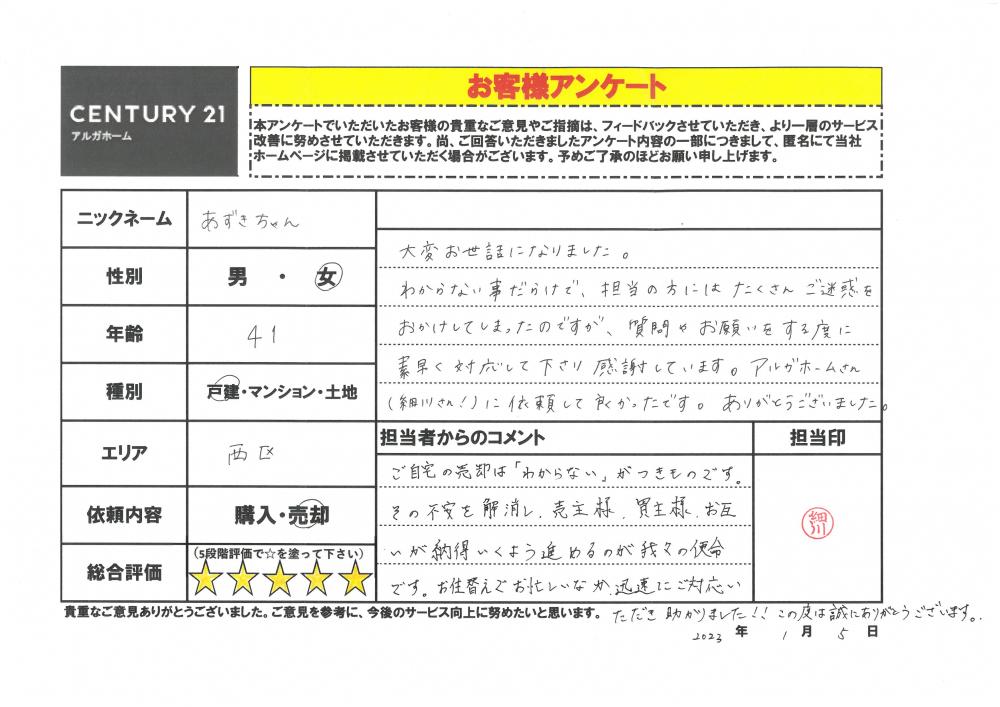 CENTURY 21
アルガホーム
お客様アンケート
本アンケートでいただいたお客様の貴重なご意見やご指摘は、フィードバックさせていただき、より一層のサービス
改善に努めさせていただきます。尚、ご回答いただきましたアンケート内容の一部につきまして、匿名にて当社
ホームページに掲載させていただく場合がございます。予めご了承のほどお願い申し上げます。
ニックネーム
あずきちゃん
性別
男 ・ 女
年齢
41
種別
戸建・マンション・土地
エリア
西区
依頼内容
購入・売却
総合評価
(5段階評価で☆を塗って下さい)
大変お世話になりました。
わからない事だらけで、担当の方にはたくさんご迷惑を
おかけしてしまったのですが、質問やお願いをする度に
素早く対応して下さり感謝しています。アルガホームさん
(細川さん!)に依頼して良かったです。ありがとうございました。
担当者からのコメント
担当印
ご自宅の売却は「わからない」がつきものです。
その不安を解消し、売主様、買主様、お互
いが納得いくよう進めるのが我々の使命
です。お住替えでお忙しいなか、迅速にご対応い
細川
貴重なご意見ありがとうございました。ご意見を参考に、今後のサービス向上に努めたいと思います。
ただき助かりました!!この度は誠にありがとうございます。
2023 年 1 月 5 日